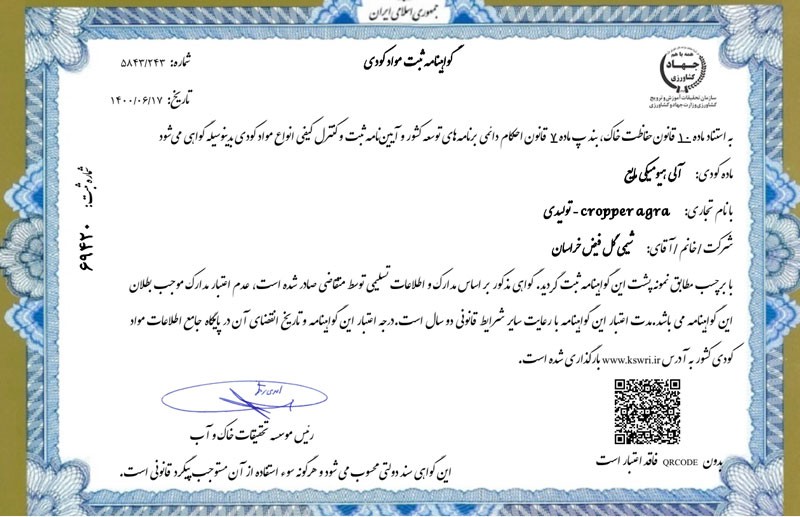 جمهوری اسلامی ایران
گواهینامه ثبت مواد کودی
شماره: ۵۸۴۳/۲۴۳
تاریخ: ۱۴۰۰/۰۶/۱۷
همه با هم
جهاد
کشاورزی
سازمان تحقیقات آموزش و ترویج
کشاورزی وزارت جهاد کشاورزی
به استناد ماده ۱۰ قانون حفاظت خاک، بند پ ماده ۷ قانون احکام دائمی برنامه های توسعه کشور و آیین نامه ثبت و کنترل کیفی انواع مواد کودی بدینوسیله گواهی می شود
ماده کودی: آلی هیومیکی مایع
با نام تجاری: cropper agra - تولیدی
شرکت / خانم / آقای: شیمی گل فیض خراسان
شماره ثبت: ۶۹۴۲۰
با برچسب مطابق نمونه پشت این گواهینامه ثبت گردید. گواهی مذکور بر اساس مدارک و اطلاعات تسلیمی توسط متقاضی صادر شده است، عدم اعتبار مدارک موجب بطلان
این گواهینامه می باشد. مدت اعتبار این گواهینامه با رعایت سایر شرایط قانونی دو سال است. درجه اعتبار این گواهینامه و تاریخ انقضای آن در پایگاه جامع اطلاعات مواد
کودی کشور به آدرس www.kswri.ir بارگذاری شده است.
رئیس موسسه تحقیقات خاک و آب
بدون QRCODE فاقد اعتبار است
این گواهی سند دولتی محسوب می شود و هرگونه سوء استفاده از آن مستوجب پیگرد قانونی است.